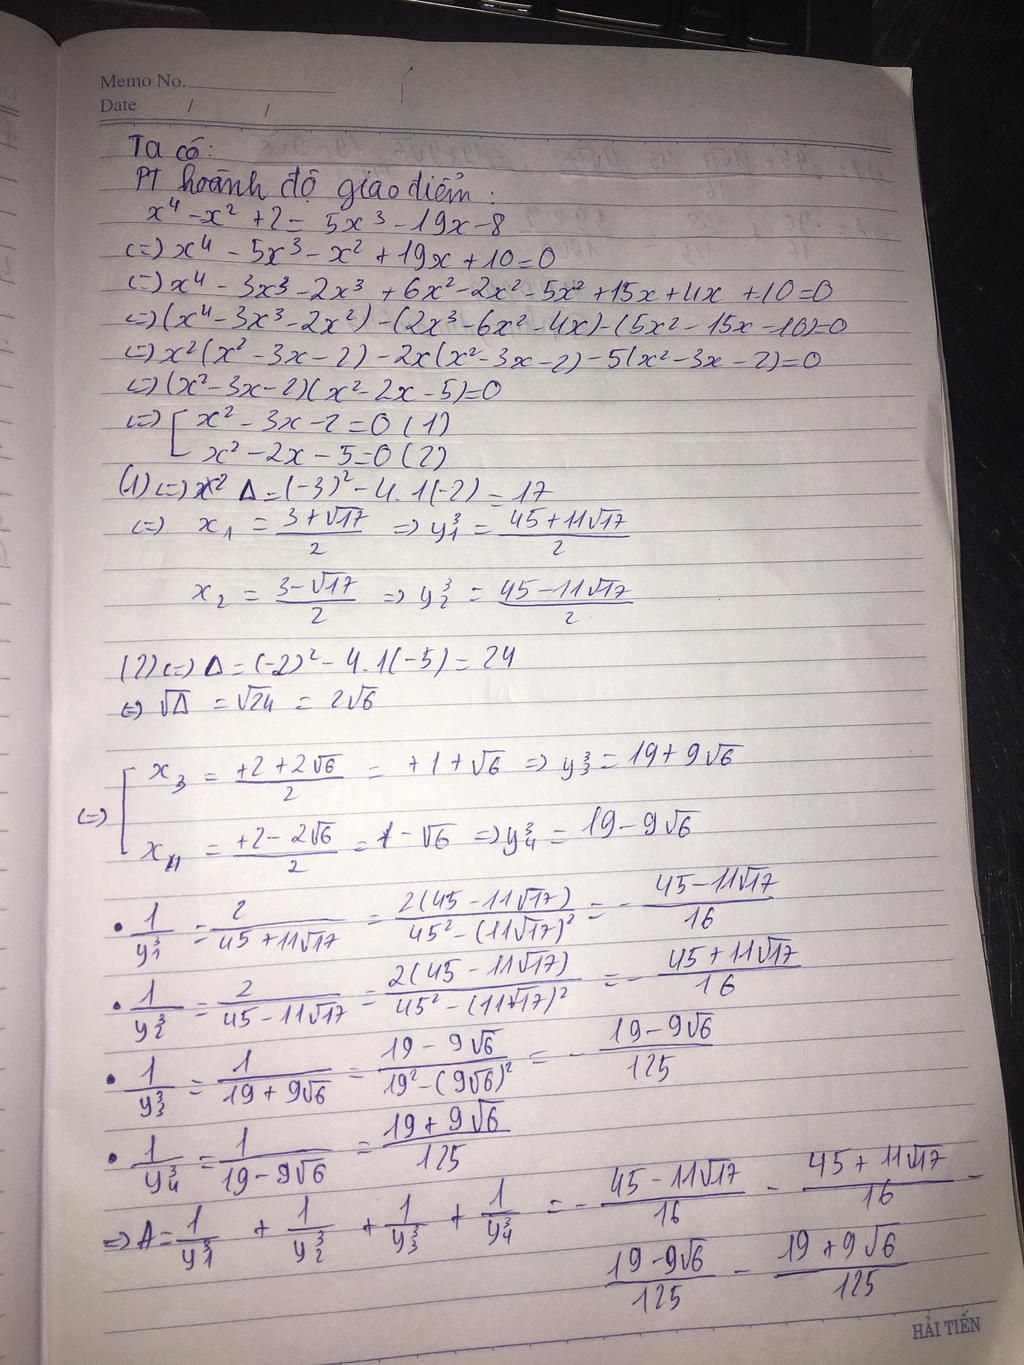 Memo No.
Date / /
Ta có:
PT hoành độ giao điểm:
x⁴ - x² + 2 = 5x³ - 19x - 8
(=) x⁴ - 5x³ - x² + 19x + 10 = 0
(=) x⁴ - 3x³ - 2x³ + 6x² - 2x² - 5x² + 15x + 4x + 10 = 0
(=) (x⁴ - 3x³ - 2x²) - (2x³ - 6x² - 4x) - (5x² - 15x - 10) = 0
(=) x²(x² - 3x - 2) - 2x(x² - 3x - 2) - 5(x² - 3x - 2) = 0
(=) (x² - 3x - 2)(x² - 2x - 5) = 0
(=) [ x² - 3x - 2 = 0 (1)
x² - 2x - 5 = 0 (2)
(1) (=) x² Δ = (-3)² - 4.1(-2) = 17
(=) x₁ = (3 + √17)/2 => y₁³ = (45 + 11√17)/2
x₂ = (3 - √17)/2 => y₂³ = (45 - 11√17)/2
(2) (=) Δ = (-2)² - 4.1(-5) = 24
(=) √Δ = √24 = 2√6
(=) [ x₃ = (+2 + 2√6)/2 = +1 + √6 => y₃³ = 19 + 9√6
x₄ = (+2 - 2√6)/2 = 1 - √6 => y₄³ = 19 - 9√6
• 1/y₁³ = 2/(45 + 11√17) = 2(45 - 11√17)/(45² - (11√17)²) = - (45 - 11√17)/16
• 1/y₂³ = 2/(45 - 11√17) = 2(45 - 11√17)/(45² - (11√17)²) = - (45 + 11√17)/16
• 1/y₃³ = 1/(19 + 9√6) = (19 - 9√6)/(19² - (9√6)²) = - (19 - 9√6)/125
• 1/y₄³ = 1/(19 - 9√6) = (19 + 9√6)/125
=> A = 1/y₁³ + 1/y₂³ + 1/y₃³ + 1/y₄³ = - (45 - 11√17)/16 - (45 + 11√17)/16 -
(19 - 9√6)/125 - (19 + 9√6)/125
HẢI TIẾN